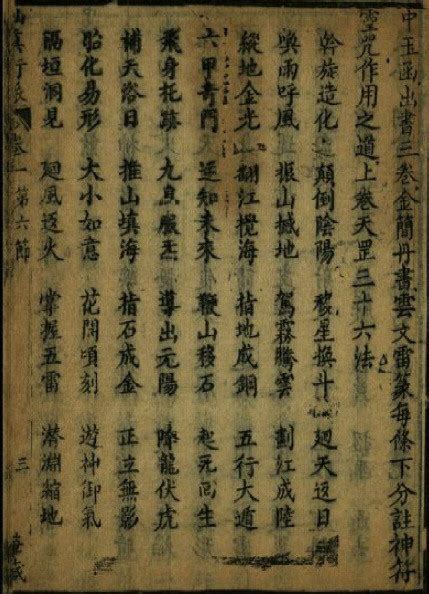 中玉函出書三卷金簡丹書雲文雷篆每條下分註神符
靈咒作用之道上卷天罡三十六法
斡旋造化 顛倒陰陽 移星換斗 迴天返日
喚雨呼風 振山撼地 駕霧騰雲 劃江成陸
縱地金光 翻江攪海 指地成鋼 五行大遁
六甲奇門 逆知未來 鞭山移石 起死回生
飛身托跡 九息服炁 導出元陽 降龍伏虎
補天浴日 推山填海 指石成金 正立無影
胎化易形 大小如意 花開頃刻 遊神御氣
隔垣洞見 迴風返火 掌握五雷 潛淵縮地
卷一第六節 三